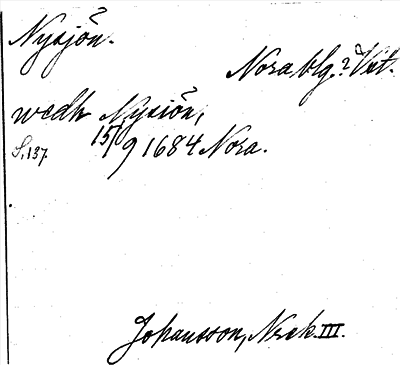 Nysjön.
Nora blg.? Vstm.
wedh Nysiön,
S. 137. 15/9 1684 Nora.
Johansson, Nrek. III.